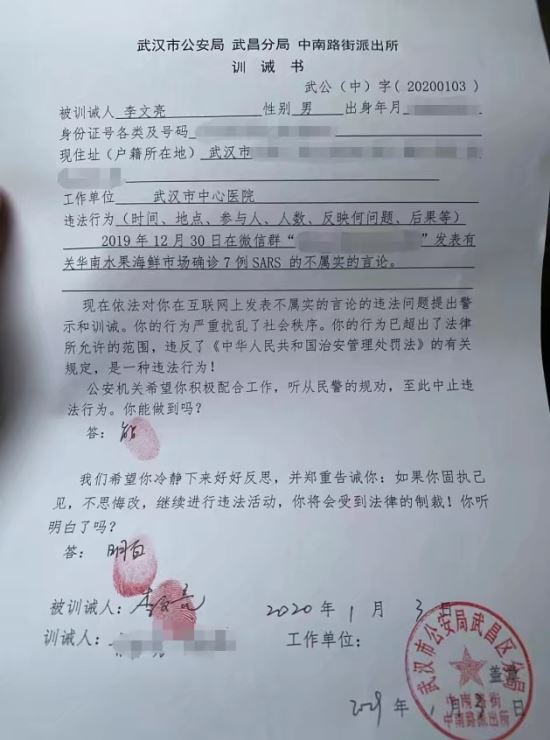 武汉市公安局 武昌分局 中南路街派出所
训 诫 书
武公（中）字（20200103）
被训诫人 李文亮 性别 男 出身年月
身份证号各类及号码
现住址（户籍所在地） 武汉市
工作单位 武汉市中心医院
违法行为（时间、地点、参与人、人数、反映何问题、后果等）
2019年12月30日在微信群“ ”发表有
关华南水果海鲜市场确诊7例SARS的不属实的言论。
现在依法对你在互联网上发表不属实的言论的违法问题提出警
示和训诫。你的行为严重扰乱了社会秩序。你的行为已超出了法律
所允许的范围，违反了《中华人民共和国治安管理处罚法》的有关
规定，是一种违法行为！
公安机关希望你积极配合工作，听从民警的规劝，至此中止违
法行为。你能做到吗？
答：能
我们希望你冷静下来好好反思，并郑重告诫你：如果你固执己
见，不思悔改，继续进行违法活动，你将会受到法律的制裁！你听
明白了吗？
答：明白
被训诫人：李文亮 2020 年 1 月 3 日
训诫人： 工作单位：
武汉市公安局武昌区分局
盖章
中南路街
中南路派出所
年 1 月 3 日